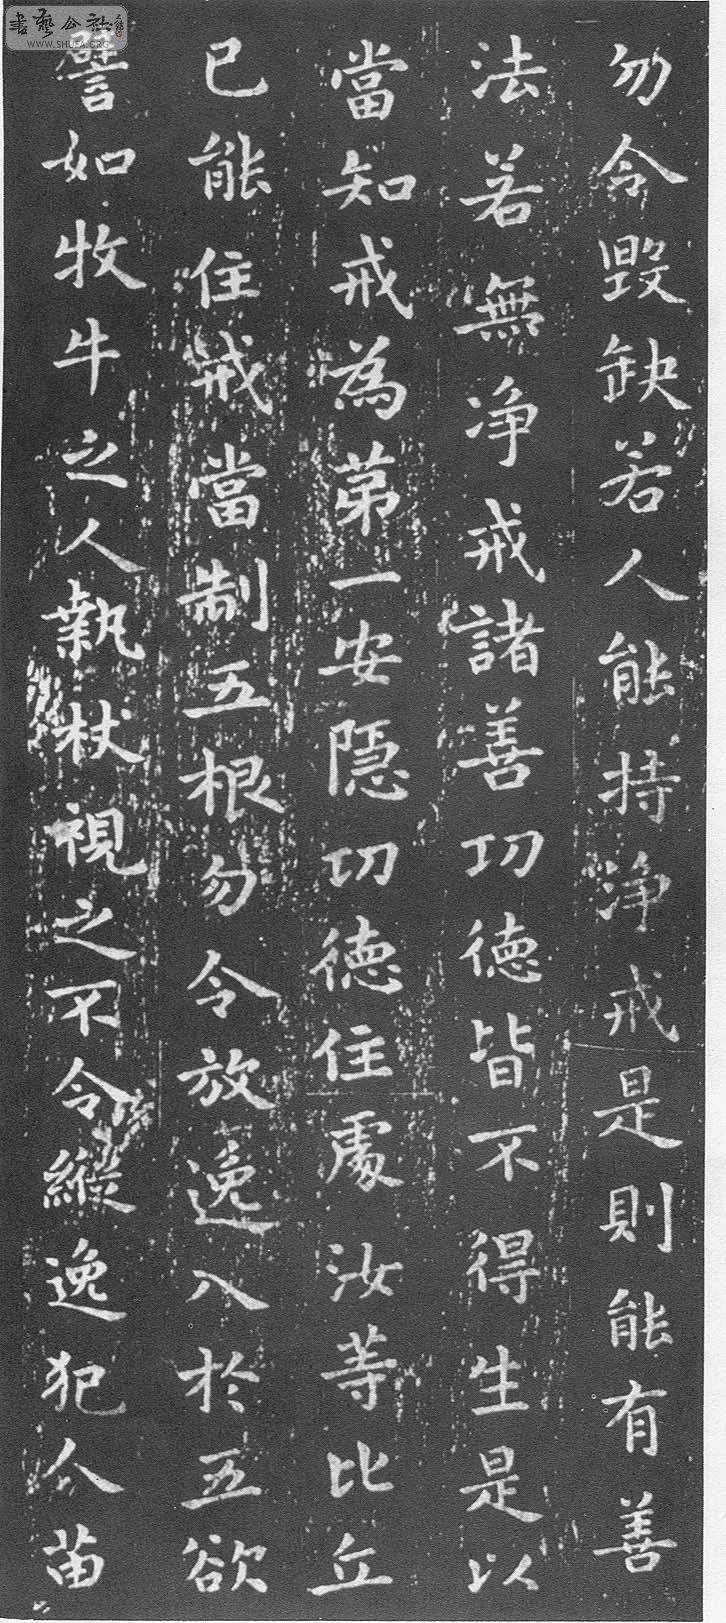 勿令毀缺若人能持淨戒是則能有善
法若無淨戒諸善功德皆不得生是以
當知戒為第一安隱功德住處汝等比丘
已能住戒當制五根勿令放逸入於五欲
譬如牧牛之人執杖視之不令縱逸犯人苗
書藝公社
WWW.SHUFA.ORG